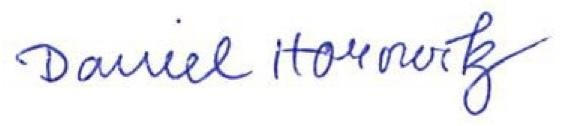 Daniel Horowitz